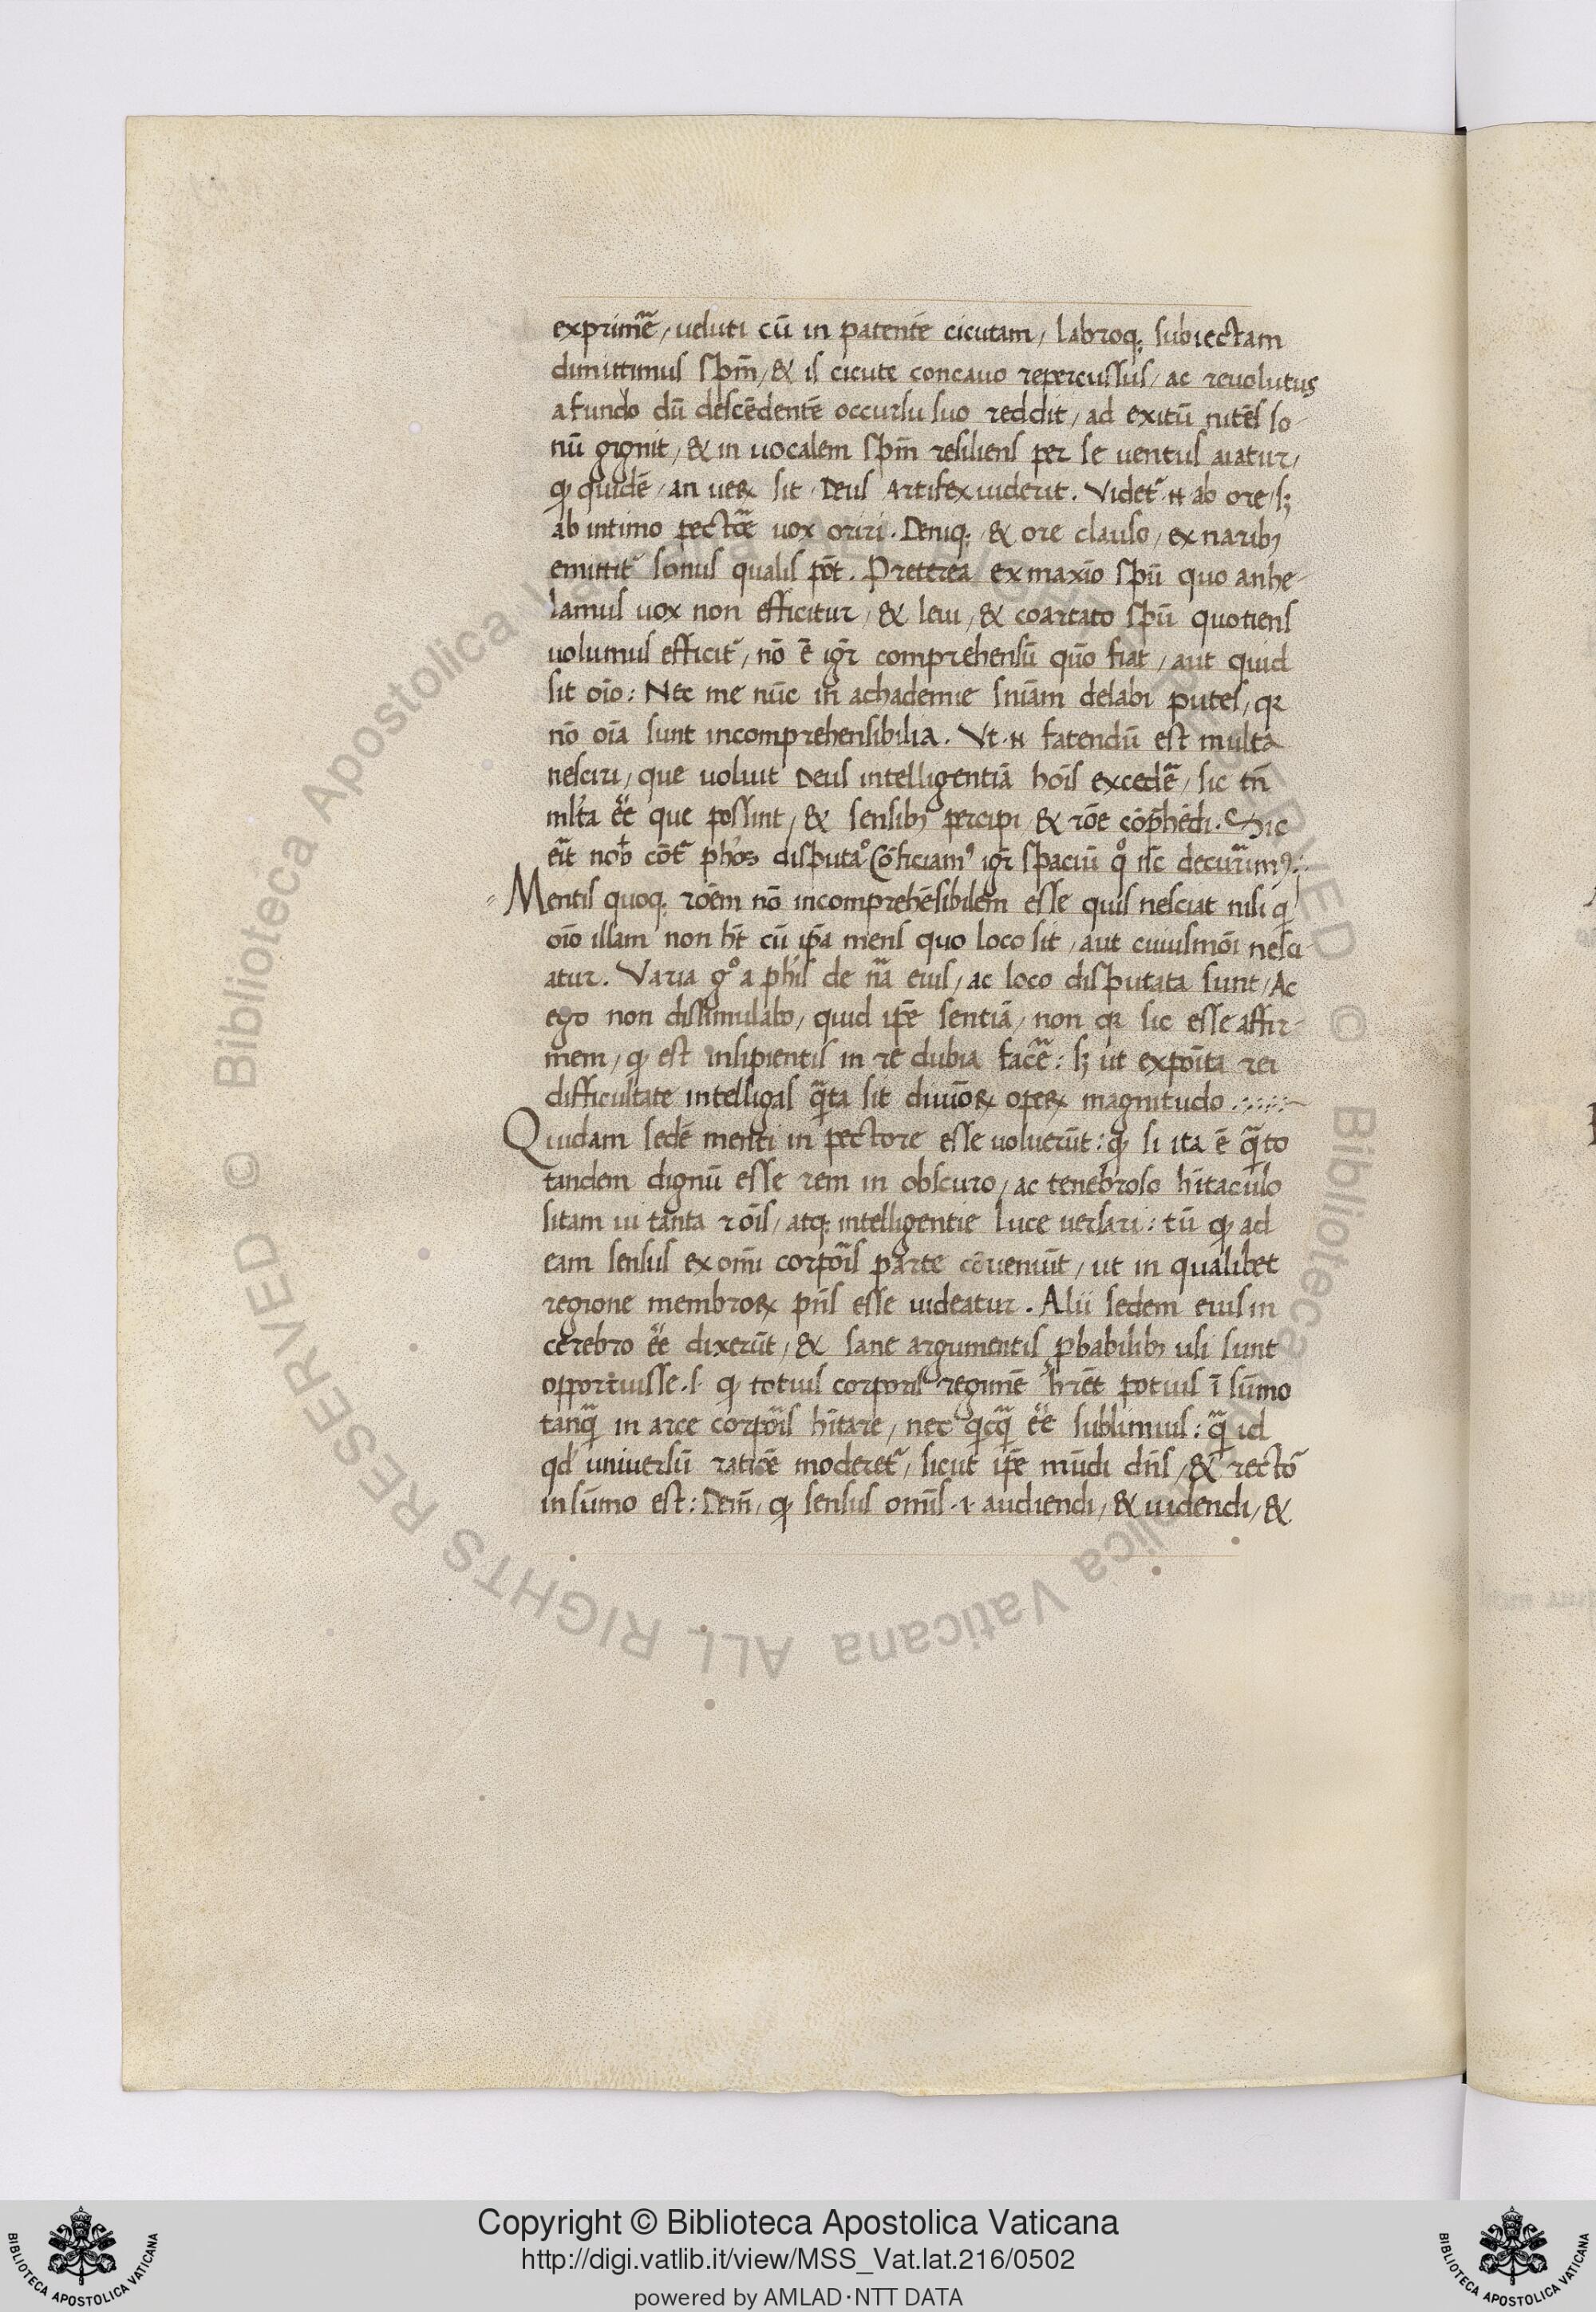 exprimẽ, ueluti cũ in patentẽ cicutam, labroq; subiectam
dimittimus spm̃, & is cicute concauo repercussus, ac reuolutus
a fundo dũ descẽdentẽ occursu suo reddit, ad exitũ nitẽs so-
nũ gignit, & in uocalem spm̃ resiliens per se uentus aiatur,
qđ quidẽ, an ueꝝ sit, Deus artifex uiderit. Videt᷑ .n. ab ore, sꝫ
ab intimo pectoẽ uox oriri. Deniq; & ore clauso, ex naribꝫ
emittit᷑ sonus qualis põt. Preterea ex maxĩo spũ quo anhe-
lamus uox non efficitur, & leui, & coartato spũ quotiens
uolumus efficit᷑, nõ ẽ igr̃ comprehensũ quõ fiat, aut quid
sit oĩo: Nec me nũc in achademie sniãm delabi putes, qꝛ
nõ oĩa sunt incomprehensibilia. Vt .n. fatendũ est multa
nesciri, que uoluit Deus intelligentiã hoĩs excedẽ, sic tñ
ml̃ta eẽ que possint, & sensibꝫ percipi & rõe cõp̃hẽdi. Sic
eĩt nob̃ cõt᷑ ph̃os disputã° Cõficiamꝰ igr̃ spaciũ q° ñc decurrimꝰ:
Mentis quoq; rõem nõ incomprehẽsibilem esse quis nesciat nisi qi
oĩo illam non ht̃ cũ ip̃a mens quo loco sit, aut cuiusmõi nesci-
atur. Varia g° a ph̃is de nã eius, ac loco disputata sunt, Ac
ego non dissimulabo, quid ip̃e sentiã, non qꝛ sic esse affir-
mem, qđ est insipientis in re dubia facẽ: sꝫ ut expoĩta rei
difficultate intelligas qᷓta sit diuĩoꝝ opeꝝ magnitudo.
Quidam sedẽ menti in pectore esse uoluerũt: qđ si ita ẽ qᷓto
tandem dignũ esse rem in obscuro, ac tenebroso hĩtaculo
sitam in tanta rõis, atq; intelligentie luce uersari: tũ qđ ad
eam sensus ex omĩ corpoĩs parte cõueniũt, ut in qualibet
regione membroꝝ pñs esse uideatur. Alii sedem eius in
cerebro eẽ dixerũt, & sane argumentis ꝓbabilibꝫ usi sunt
opportuisse .s. qđ totius corporis regimẽ hrẽt potius ĩ sũmo
tanqᷓ in arce corpoĩs hĩtare, nec qicqᷓ eẽ sublimius: qᷓ id
qd uniuersũ ratiõe moderet᷑, sicut ip̃e mũdi dñs, & rectõ
in sũmo est: Dem̃, qđ sensus omĩs .i. audiendi, & uidendi, &
Copyright © Biblioteca Apostolica Vaticana
http://digi.vatlib.it/view/MSS_Vat.lat.216/0502
powered by AMLAD·NTT DATA
BIBLIOTECA APOSTOLICA VATICANA
BIBLIOTECA APOSTOLICA VATICANA
© Biblioteca Apostolica Vaticana ALL RIGHTS RESERVED